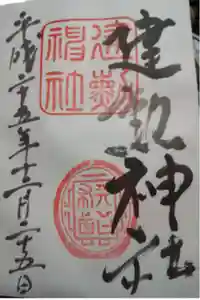 建勲神社
建勲
神社
平成二十五年十二月二十五日